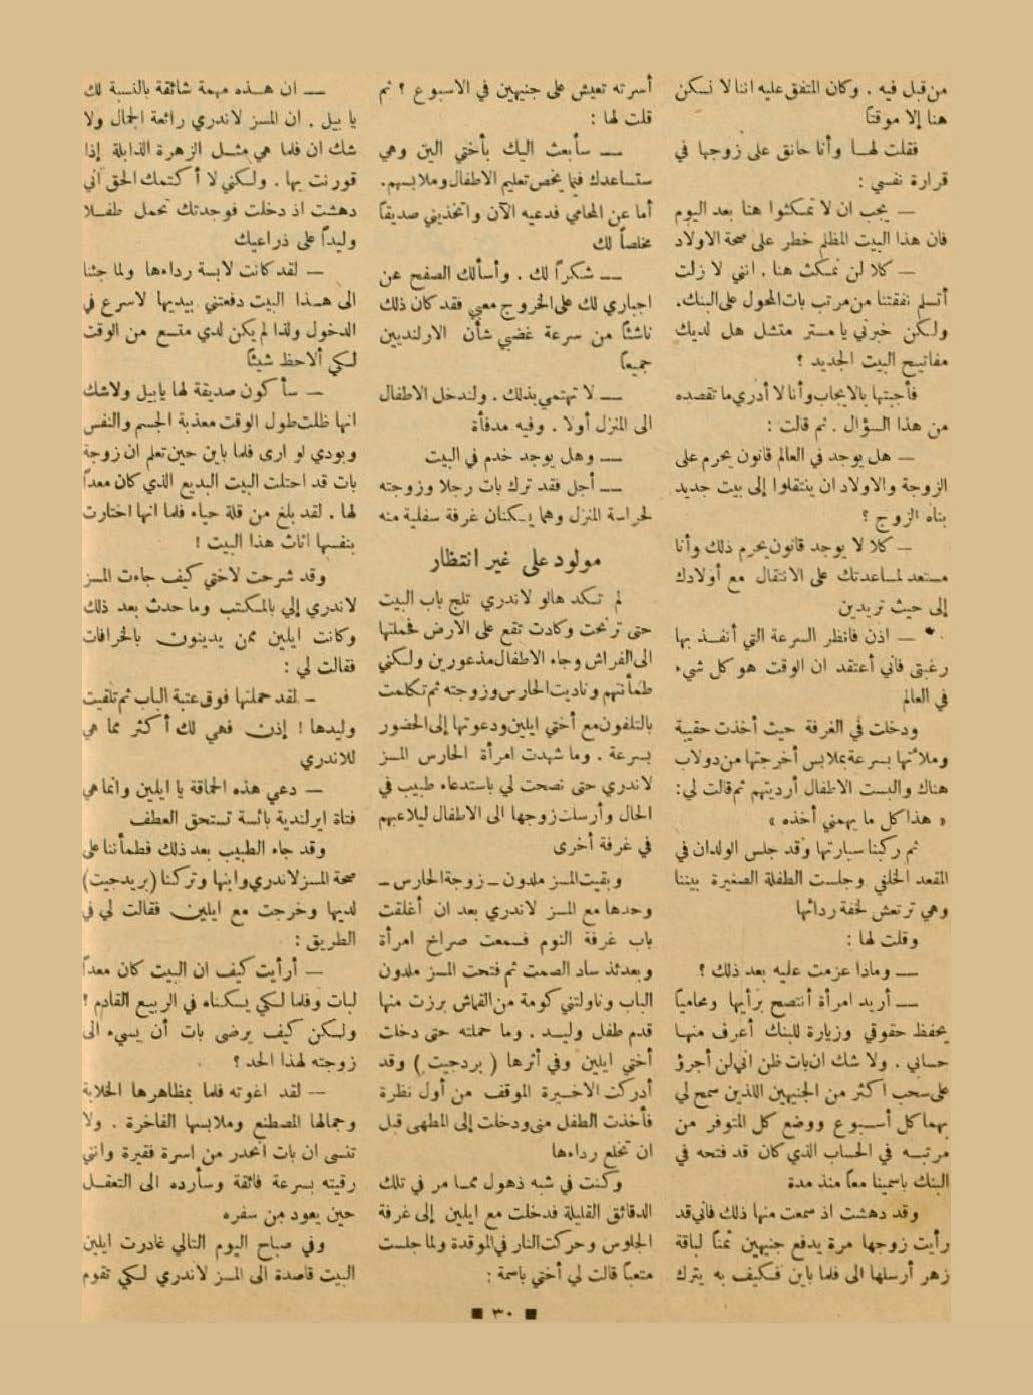 من قبل فيه . وكان المتفق عليه اننا لا نسكن
هنا إلا موقتاً
فقلت لهـا وأنا حانق على زوجها في
قرارة نفسي :
— يجب ان لا تمكثوا هنا بعد اليوم
فان هذا البيت المظلم خطر على صحة الاولاد
— كلا لن نمكث هنا . انني لا زلت
أتسلم نفقتنا من مرتب بات المحول على البنك .
ولكن خبرني يا مستر متشل هل لديك
مفاتيح البيت الجديد ؟
فأجبتها بالايجاب وأنا لا أدري ما تقصده
من هذا السؤال . ثم قالت :
— هل يوجد في العالم قانون يحرم على
الزوجة والاولاد ان ينتقلوا إلى بيت جديد
بناه الزوج ؟
— كلا لا يوجد قانون يحرم ذلك وأنا
مستعد لمساعدتك على الانتقال مع أولادك
إلى حيث تريدين
— اذن فانظر السرعة التي أنفـذ بها
رغبتي فاني أعتقد ان الوقت هو كل شيء
في العالم
ودخلت في الغرفة حيث أخذت حقيبة
وملأتها بسرعة بملابس أخرجتها من دولاب
هناك والبست الاطفال أرديتهم ثم قالت لي :
« هذا كل ما يهمني أخذه »
ثم ركبنا سيارتها وقد جلس الولدان في
المقعد الخلفي وجلست الطفلة الصغيرة بيننا
وهي ترتعش لخفة ردائها
وقلت لها :
— وماذا عزمت عليه بعد ذلك ؟
— أريد امرأة أنتصح برأيها ومحامياً
يحفظ حقوقي وزيارة للبنك أعرف منهـا
حسابي . ولا شك ان بات ظن اني لن أجرؤ
على سحب اكثر من الجنيهين اللذين سمح لي
بهما كل أسبوع ووضع كل المتوفر من
مرتبـه في الحساب الذي كان قد فتحه في
البنك باسمينا معاً منذ مدة
وقد دهشت اذ سمعت منها ذلك فاني قد
رأيت زوجها مرة يدفع جنيهين ثمناً لباقة
زهر أرسلها الى فلما باين فكيف به يترك
أسرته تعيش على جنيهين في الاسبوع ؟ ثم
قلت لها :
— سأبعث اليك بأختي الين وهي
ستساعدك فيما يخص تعليم الاطفال وملابسهم .
أما عن المحامي فدعيه الآن واتخذيني صديقاً
مخلصاً لك
— شكراً لك . وأسألك الصفح عن
اجباري لك على الخروج معي فقد كان ذلك
ناشئاً من سرعة غضبي شأن الارلنديين
جميعاً
— لا تهتمي بذلك . ولندخل الاطفال
الى المنزل أولا . وفيه مدفأة
— وهل يوجد خدم في البيت
— أجل فقد ترك بات رجلا وزوجته
لحراسة المنزل وهما يسكنان غرفة سفلية منه
مولود على غير انتظار
لم تكد هالو لاندري تلج باب البيت
حتى ترنحت وكادت تقع على الارض فحملتها
الى الفراش وجاء الاطفال مذعورين ولكني
طمأنتهم وناديت الحارس وزوجته ثم تكلمت
بالتلفون مع أختي ايلين ودعوتها إلى الحضور
بسرعة . وما شهدت امرأة الحارس المسز
لاندري حتى نصحت لي باستدعاء طبيب في
الحال وأرسلت زوجها الى الاطفال ليلاعبهم
في غرفة أخرى
وبقيت المسز ملدون — زوجة الحارس —
وحدها مع المسز لاندري بعد ان أغلقت
باب غرفة النوم فسمعت صراخ امرأة
وبعدئذ ساد الصمت ثم فتحت المسز ملدون
الباب وناولتني كومة من القماش برزت منها
قدم طفل وليـد . وما حملته حتى دخلت
أختي ايلين وفي أثرها ( بردجيت ) وقد
أدركت الاخيرة الموقف من أول نظرة
فأخذت الطفل مني ودخلت إلى المطهى قبل
ان تخلع رداءها
وكنت في شبه ذهول ممـا مر في تلك
الدقائق القليلة فدخلت مع ايلين إلى غرفة
الجلوس وحركت النار في الموقدة ولما جلست
متعباً قالت لي أختي باسمة :
— ان هـذه مهمة شائقة بالنسبة لك
يا بيل . ان المسز لاندري رائعة الجمال ولا
شك ان فلما هي مثـل الزهرة الذابلة إذا
قورنت بها . ولكني لا أكتمك الحق اني
دهشت اذ دخلت فوجدتك تحمل طفـلا
وليداً على ذراعيك
— لقد كانت لابسة رداءها ولما جئنا
الى هـذا البيت دفعتني بيديها لاسرع في
الدخول ولذا لم يكن لدي متسع من الوقت
لكي ألاحظ شيئاً
— سأكون صديقة لها يا بيل ولا شك
انها ظلت طول الوقت معذبة الجسم والنفس
وبودي لو ارى فلما باين حين تعلم ان زوجة
بات قد احتلت البيت البديع الذي كان معداً
لها . لقد بلغ من قلة حياء فلما انها اختارت
بنفسها اثاث هذا البيت !
وقد شرحت لاختي كيف جاءت المسز
لاندري إلي بالمكتب وما حدث بعد ذلك
وكانت ايلين ممن يدينون بالخرافات
فقالت لي :
— لقد حملتها فوق عتبة الباب ثم تلقيت
وليدها ! إذن فهي لك أكثر مما هي
للاندري
— دعي هذه الحماقة يا ايلين وانما هي
فتاة ايرلندية بائسة تستحق العطف
وقد جاء الطبيب بعد ذلك فطمأننا على
صحة المسز لاندري وابنها وتركنا ( بريدجيت )
لديها وخرجت مع ايلين فقالت لي في
الطريق :
— أرأيت كيف ان البيت كان معداً
لبات وفلما لكي يسكناه في الربيع القادم ؟
ولكن كيف يرضى بات أن يسيء الى
زوجته لهذا الحد ؟
— لقد اغوته فلما بمظاهرها الخلابة
وجمالها المصطنع وملابسها الفاخرة . ولا
تنسى ان بات انحدر من اسرة فقيرة وانني
رقيته بسرعة فائقة وسأرده الى التعقـل
حين يعود من سفره
وفي صباح اليوم التالي غادرت ايلين
البيت قاصدة الى المسز لاندري لكي تقوم
■ ٣٠ ■